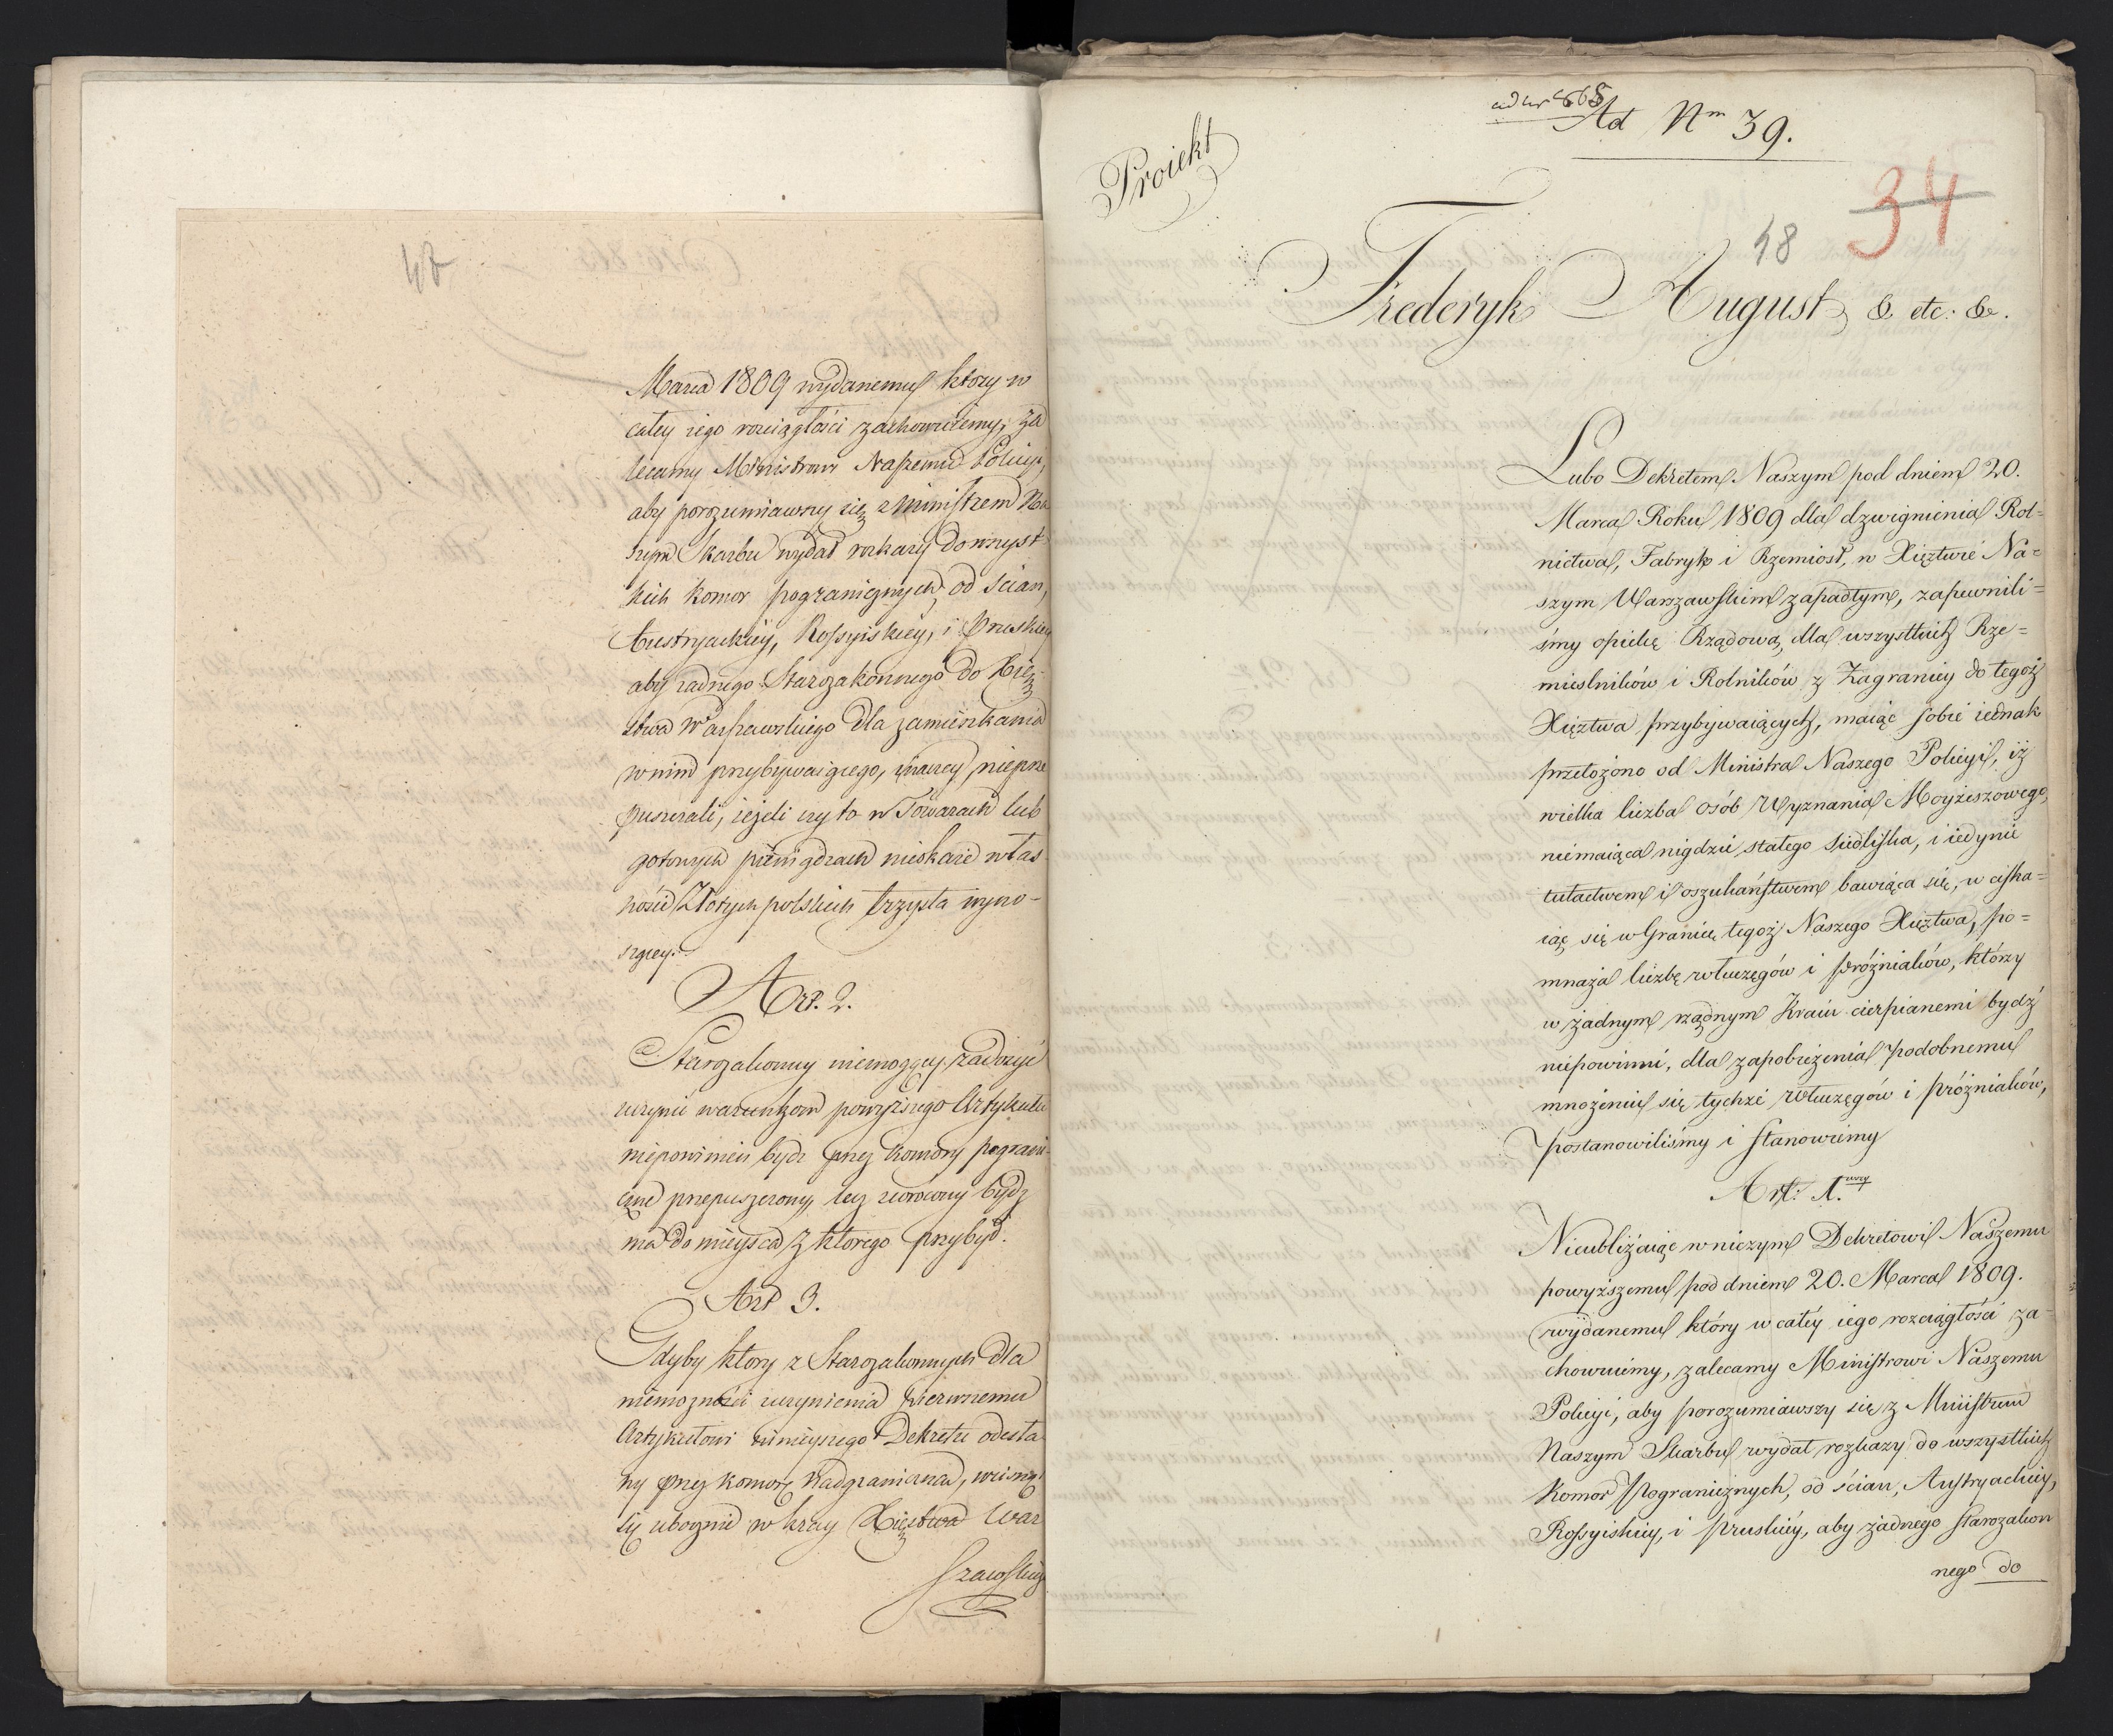 Marca 1809 wydanemu który w
całey iego rozciągłości zachowuiemy, za
lecamy Ministrowi Naszemu Policyi,
aby porozumiawszy się z Ministrem Na
szym Skarbu wydał rozkazy do wszyst
kich komor pogranicznych, od ścian,
Austryackiéy, Rossyiskiey, i Pruskiey
aby żadnego Starozakonnego do Xię
stwa Warszawskiego dla zamieszkania
w nim przybywaiącego, inaczey nieprze
puszczali, ieżeli czy to w Towarach lub
gotowych pieniądzach nieokaże włas
ności Złotych polskich trzysta wyno-
szącey.
Art. 2.
Starozakonny niemogący zadosyć
uczynić warunkom powyższego Artykułu
niepowinien bydź przez Komory pograni
czne przepuszczony, lecz zwrócony bydź
ma do mieysca z którego przybył.
Art 3.
Gdyby który z Starozakonnych dla
niemożności uczynienia pierwszemu
Artykułowi ninieyszego Dekretu odesła
ny przez komorę nadgraniczną, wcisnął
się ubocznie w kray Xięstwa War
szawskiego
48
ad Nr 668
Ad Nm 39.
Proiekt
34
48
Frederyk August & etc: &c.
Lubo Dekretem Naszym pod dniem 20.
Marca Roku 1809 dla dzwignienia Rol=
nictwa, Fabryk i Rzemiosł, w Xięztwie Na=
szym Warszawskim zapadłym, zapewnili=
śmy opiekę Rządową, dla wszystkich Rze=
mieslników i Rolników z Zagranicy do tegoż
Xięztwa przybywaiących, maiąc sobie iednak
przełożono od Ministra Naszego Policyi, iż
wielka liczba osób Wyznania Moyżeszowego,
niemaiąca nigdzie stałego siedliska, i iedynie
tułactwem i oszukaństwem bawiąca się, w ciska=
iąc się w Granice tegoż Naszego Xięztwa, po=
mnaża liczbę włuczęgów i próżniaków, którzy
w żadnym rządnym Kraiu cierpianemi bydź
niepowinni, dla zapobieżenia podobnemu
mnożeniu się tychże włuczęgów i próżniaków,
postanowiliśmy i stanowiemy
Art: 1.wszy
Nieubliżaiąc w niczym Dekretowi Naszemu
powyższemu pod dniem 20. Marca 1809.
wydanemu który w całéy iego rozciągłości za
chowuiemy, zalecamy Ministrowi Naszemu
Policyi, aby porozumiawszy się z Ministrem
Naszym Skarbu wydał rozkazy do wszystkich
Komor Pogranicznych, od ścian, Austryackiéy,
Rossyiskiéy, i Pruskiéy, aby żadnego starozakon
nego do